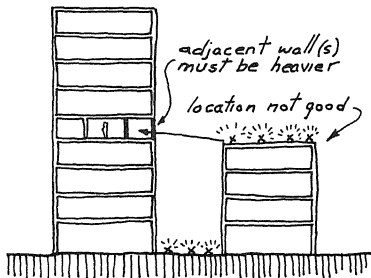 adjacent wall(s)
must be heavier
location not good